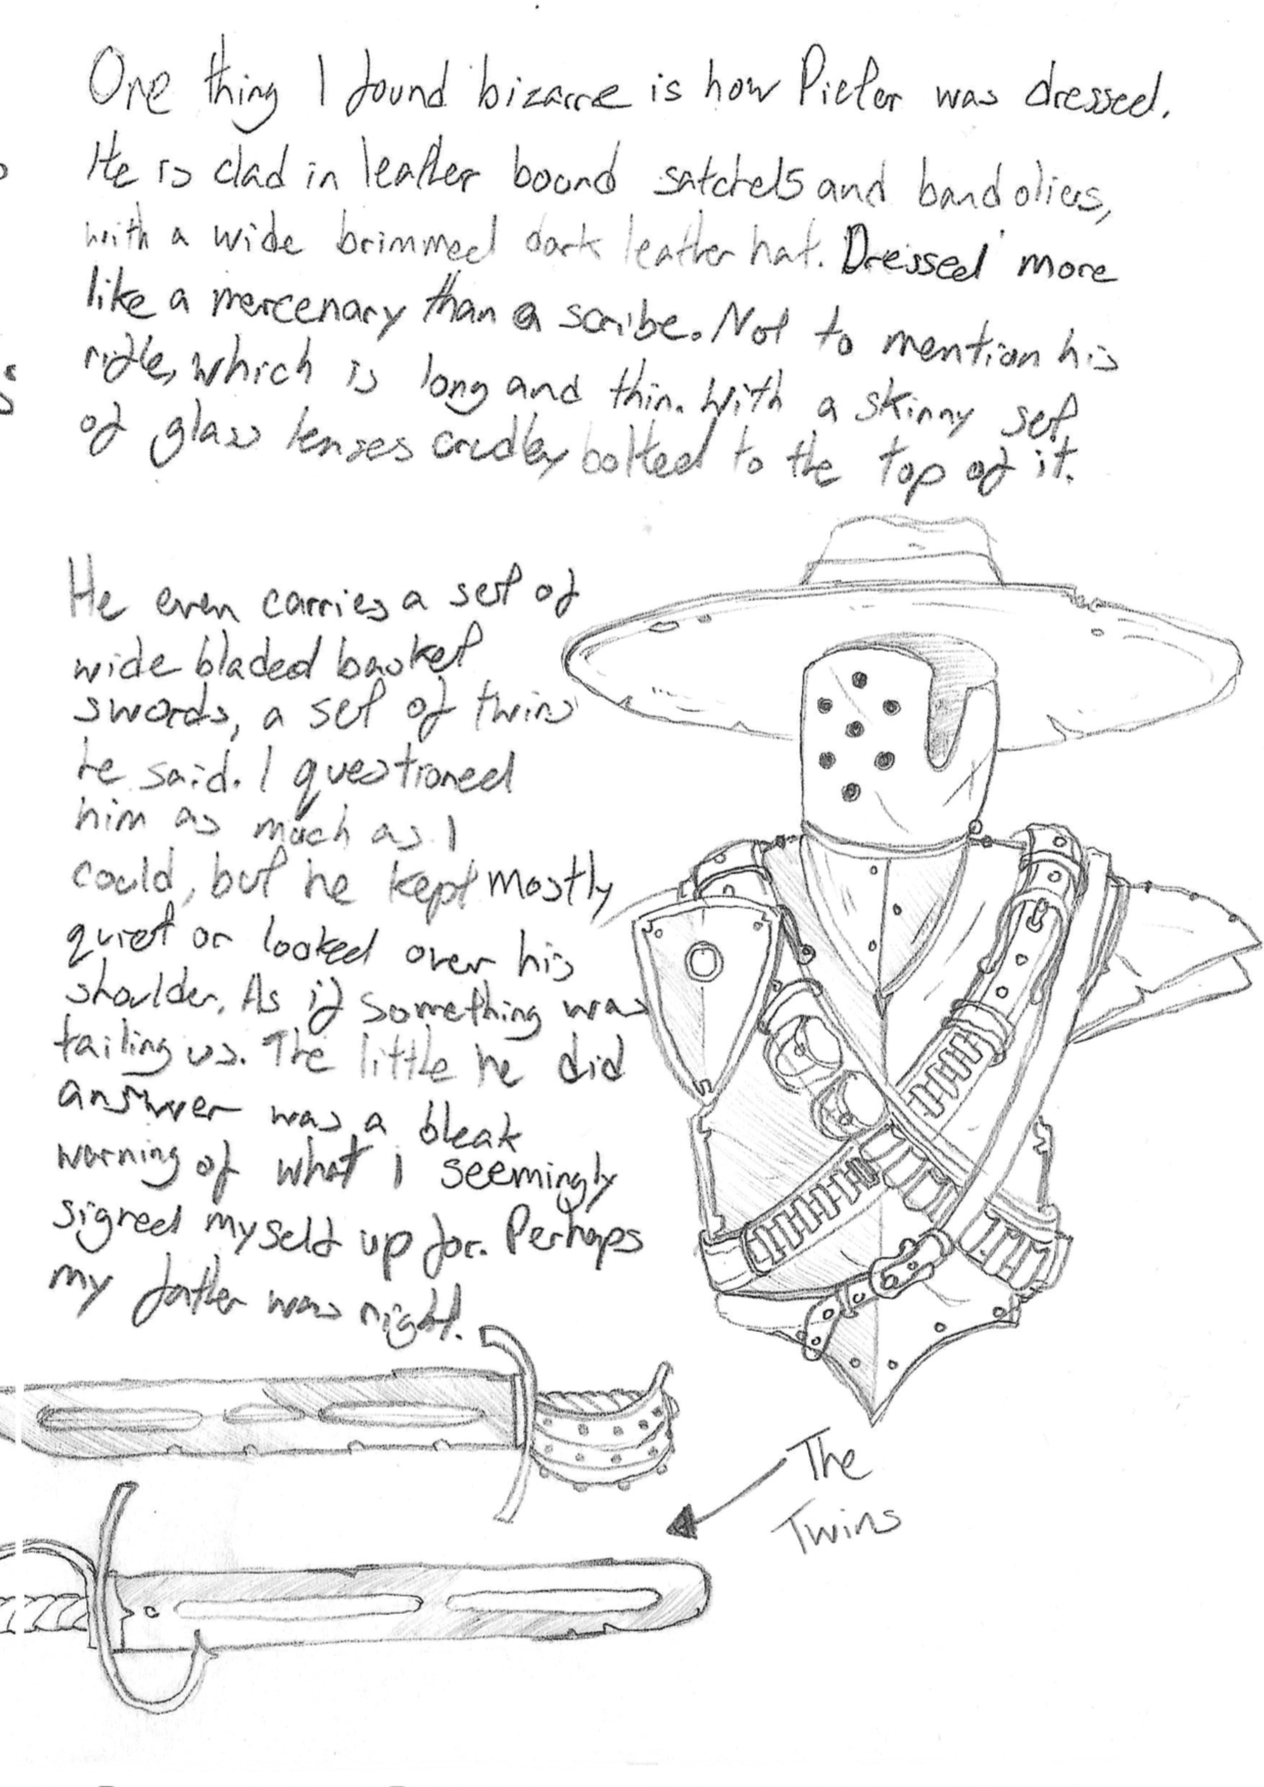 One thing I found bizarre is how Pieter was dressed.
He is clad in leather bound satchels and bandoliers,
with a wide brimmed dark leather hat. Dressed more
like a mercenary than a scribe. Not to mention his
rifle, which is long and thin. With a skinny set
of glass lenses crudley bolted to the top of it.
He even carries a set of
wide bladed basket
swords, a set of twins
he said. I questioned
him as much as I
could, but he kept mostly
quiet or looked over his
shoulder. As if something was
tailing us. The little he did
answer was a bleak
warning of what i seemingly
signed myself up for. Perhaps
my father was right.
The
Twins